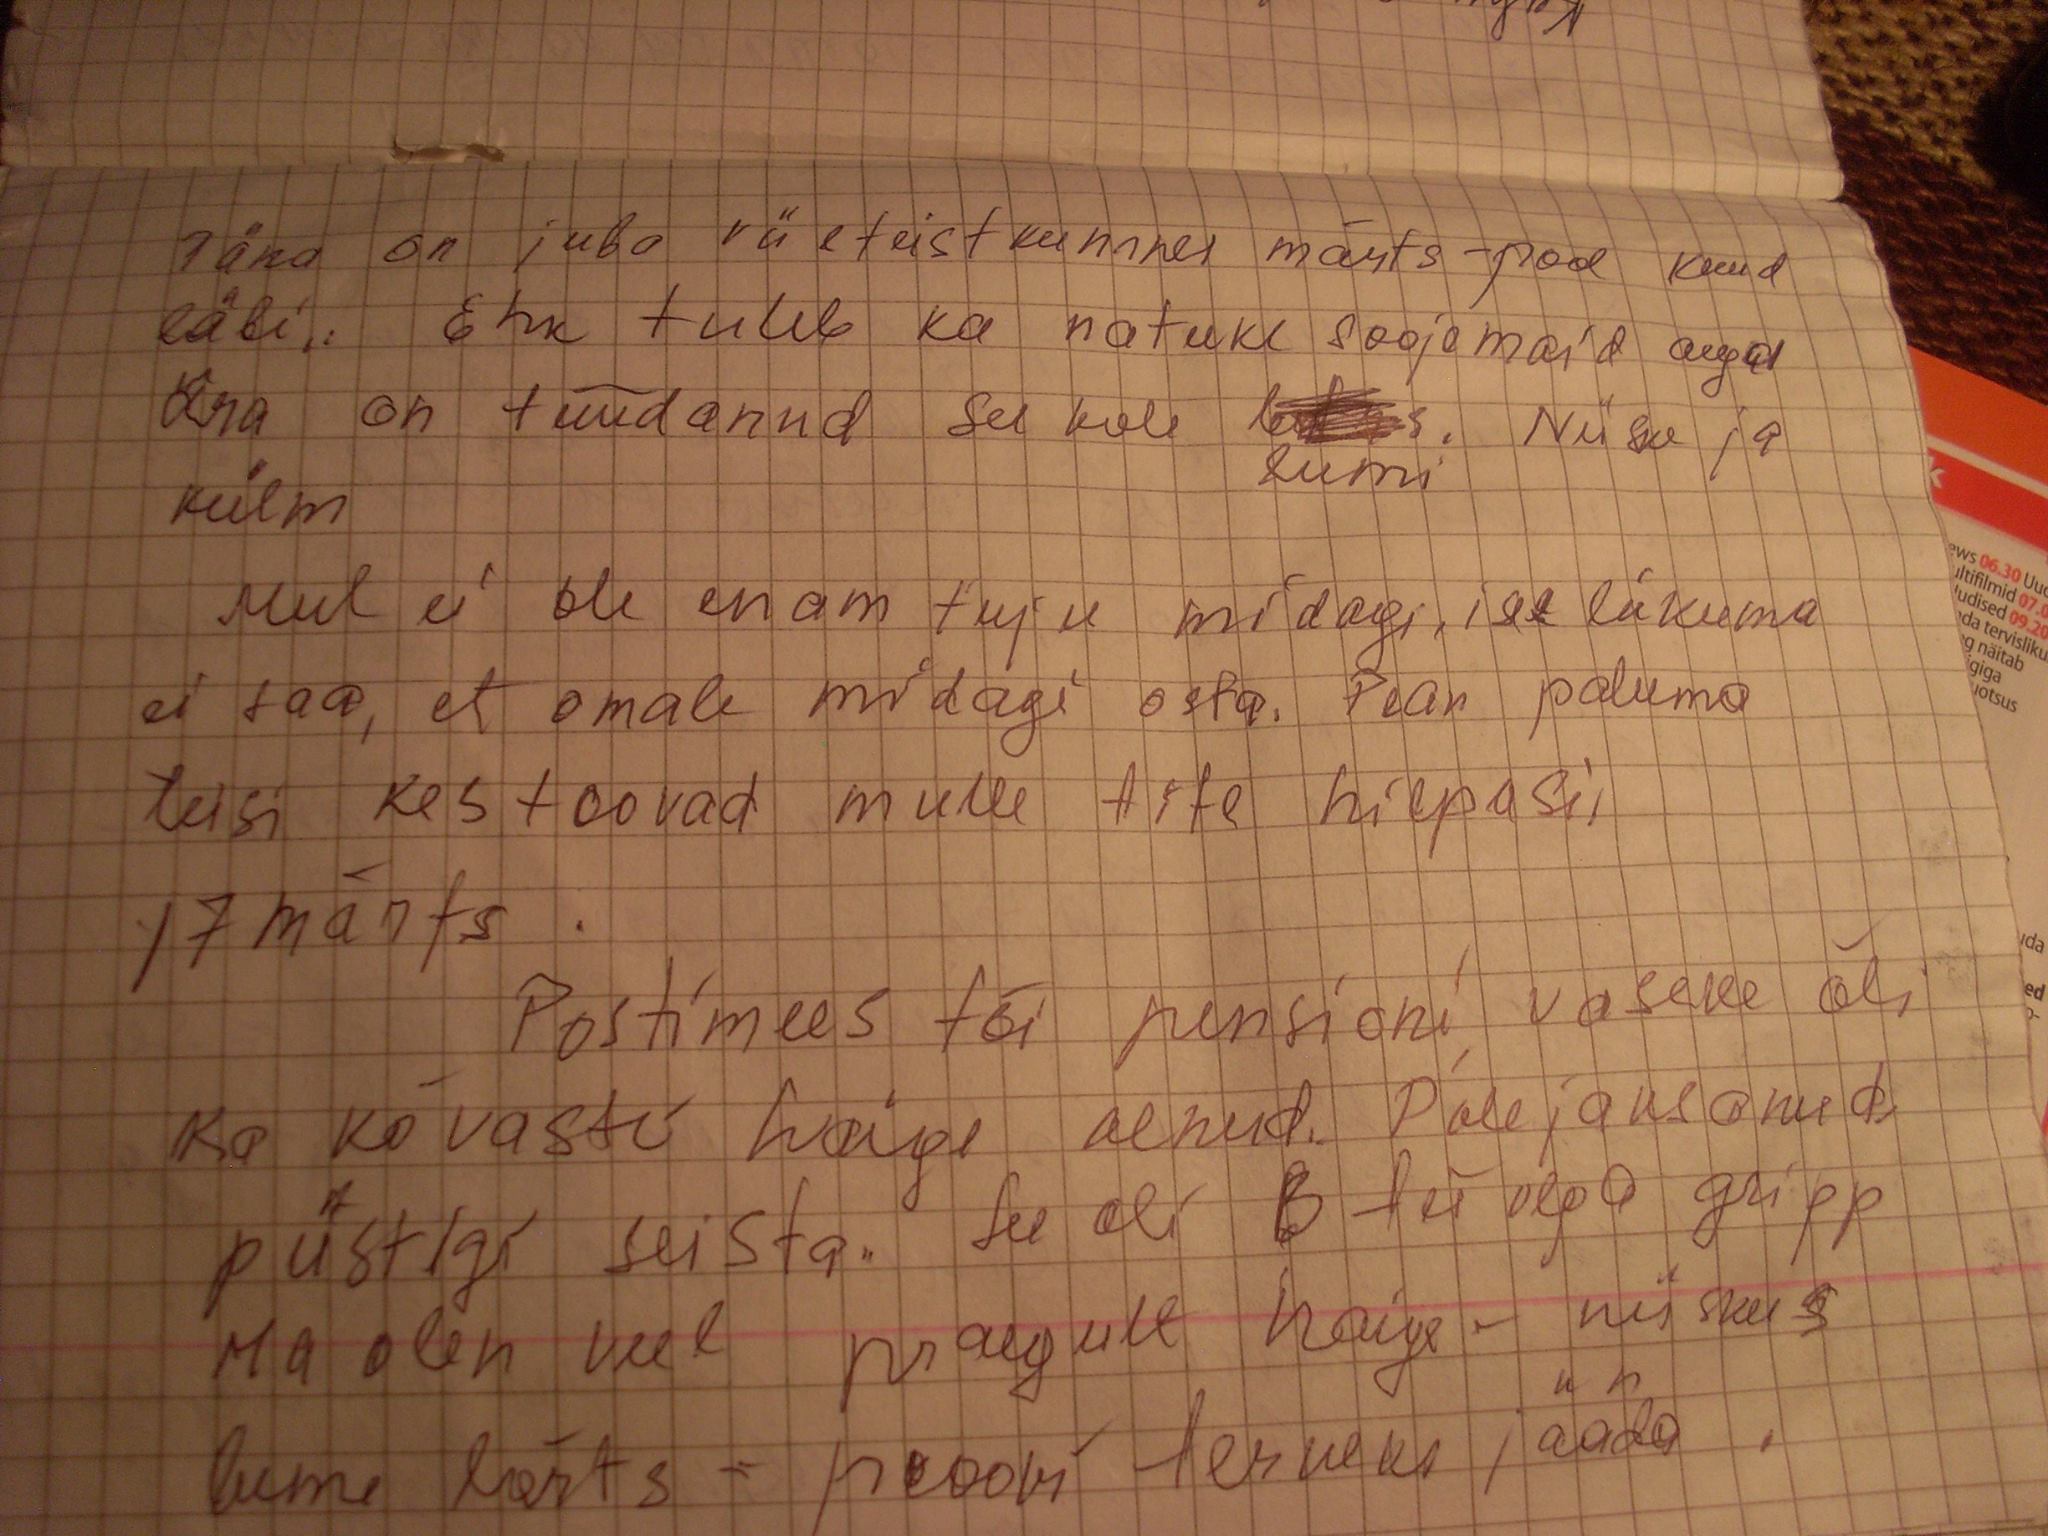 Täna on juba viieteistkümnes märts - pool kuud
läbi.. Ehk tuleb ka natuke soojemaid aegu
Ära on tüüdanud see kole lumi. Niiske ja
külm
Mul ei ole enam tuju midagi, ise liikuma
ei saa, et omale midagi osta. Pean paluma
teisi kes toovad mulle
17 märts.
Postimees tõi pensioni, vaseke oli
ka kõvasti haige olnud. Pole jaksanud
püstigi seista.. See oli B tüüpga gripp
Ma olen veel praegult haige - niiskus
lume lörts - proovi terveks jääda.
ews 06.30 Uud
ultifilmid 07.0
Uudised 09.20
da tervisliku
g näitab
giga
uotsus
uda
ed
k